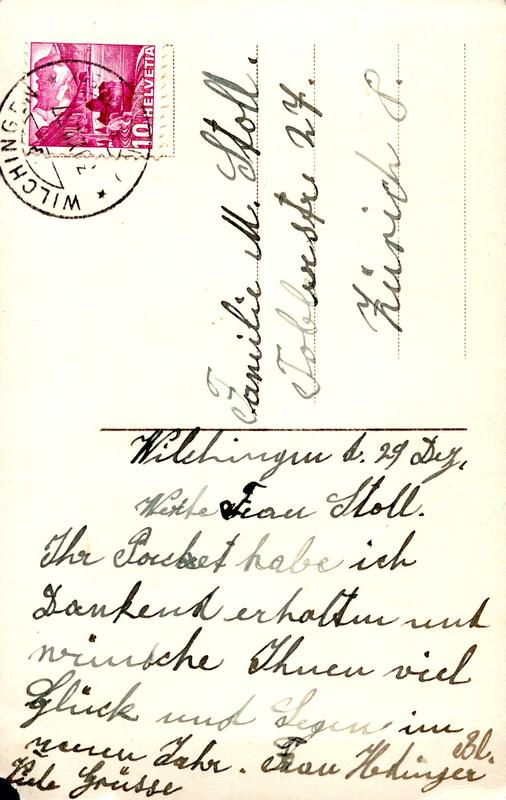 WILCHINGEN
10 HELVETIA
Familie M. Stoll.
Toblerstre 27.
Zürich 8.
Wilchingen d. 29 Dez.
Werte Frau Stoll.
Ihr Packet habe ich
Dankend erhalten und
wünsche Ihnen viel
Glück und Segen im
neuen Jahr. Frau Hedinger Bl.
Viele Grüsse